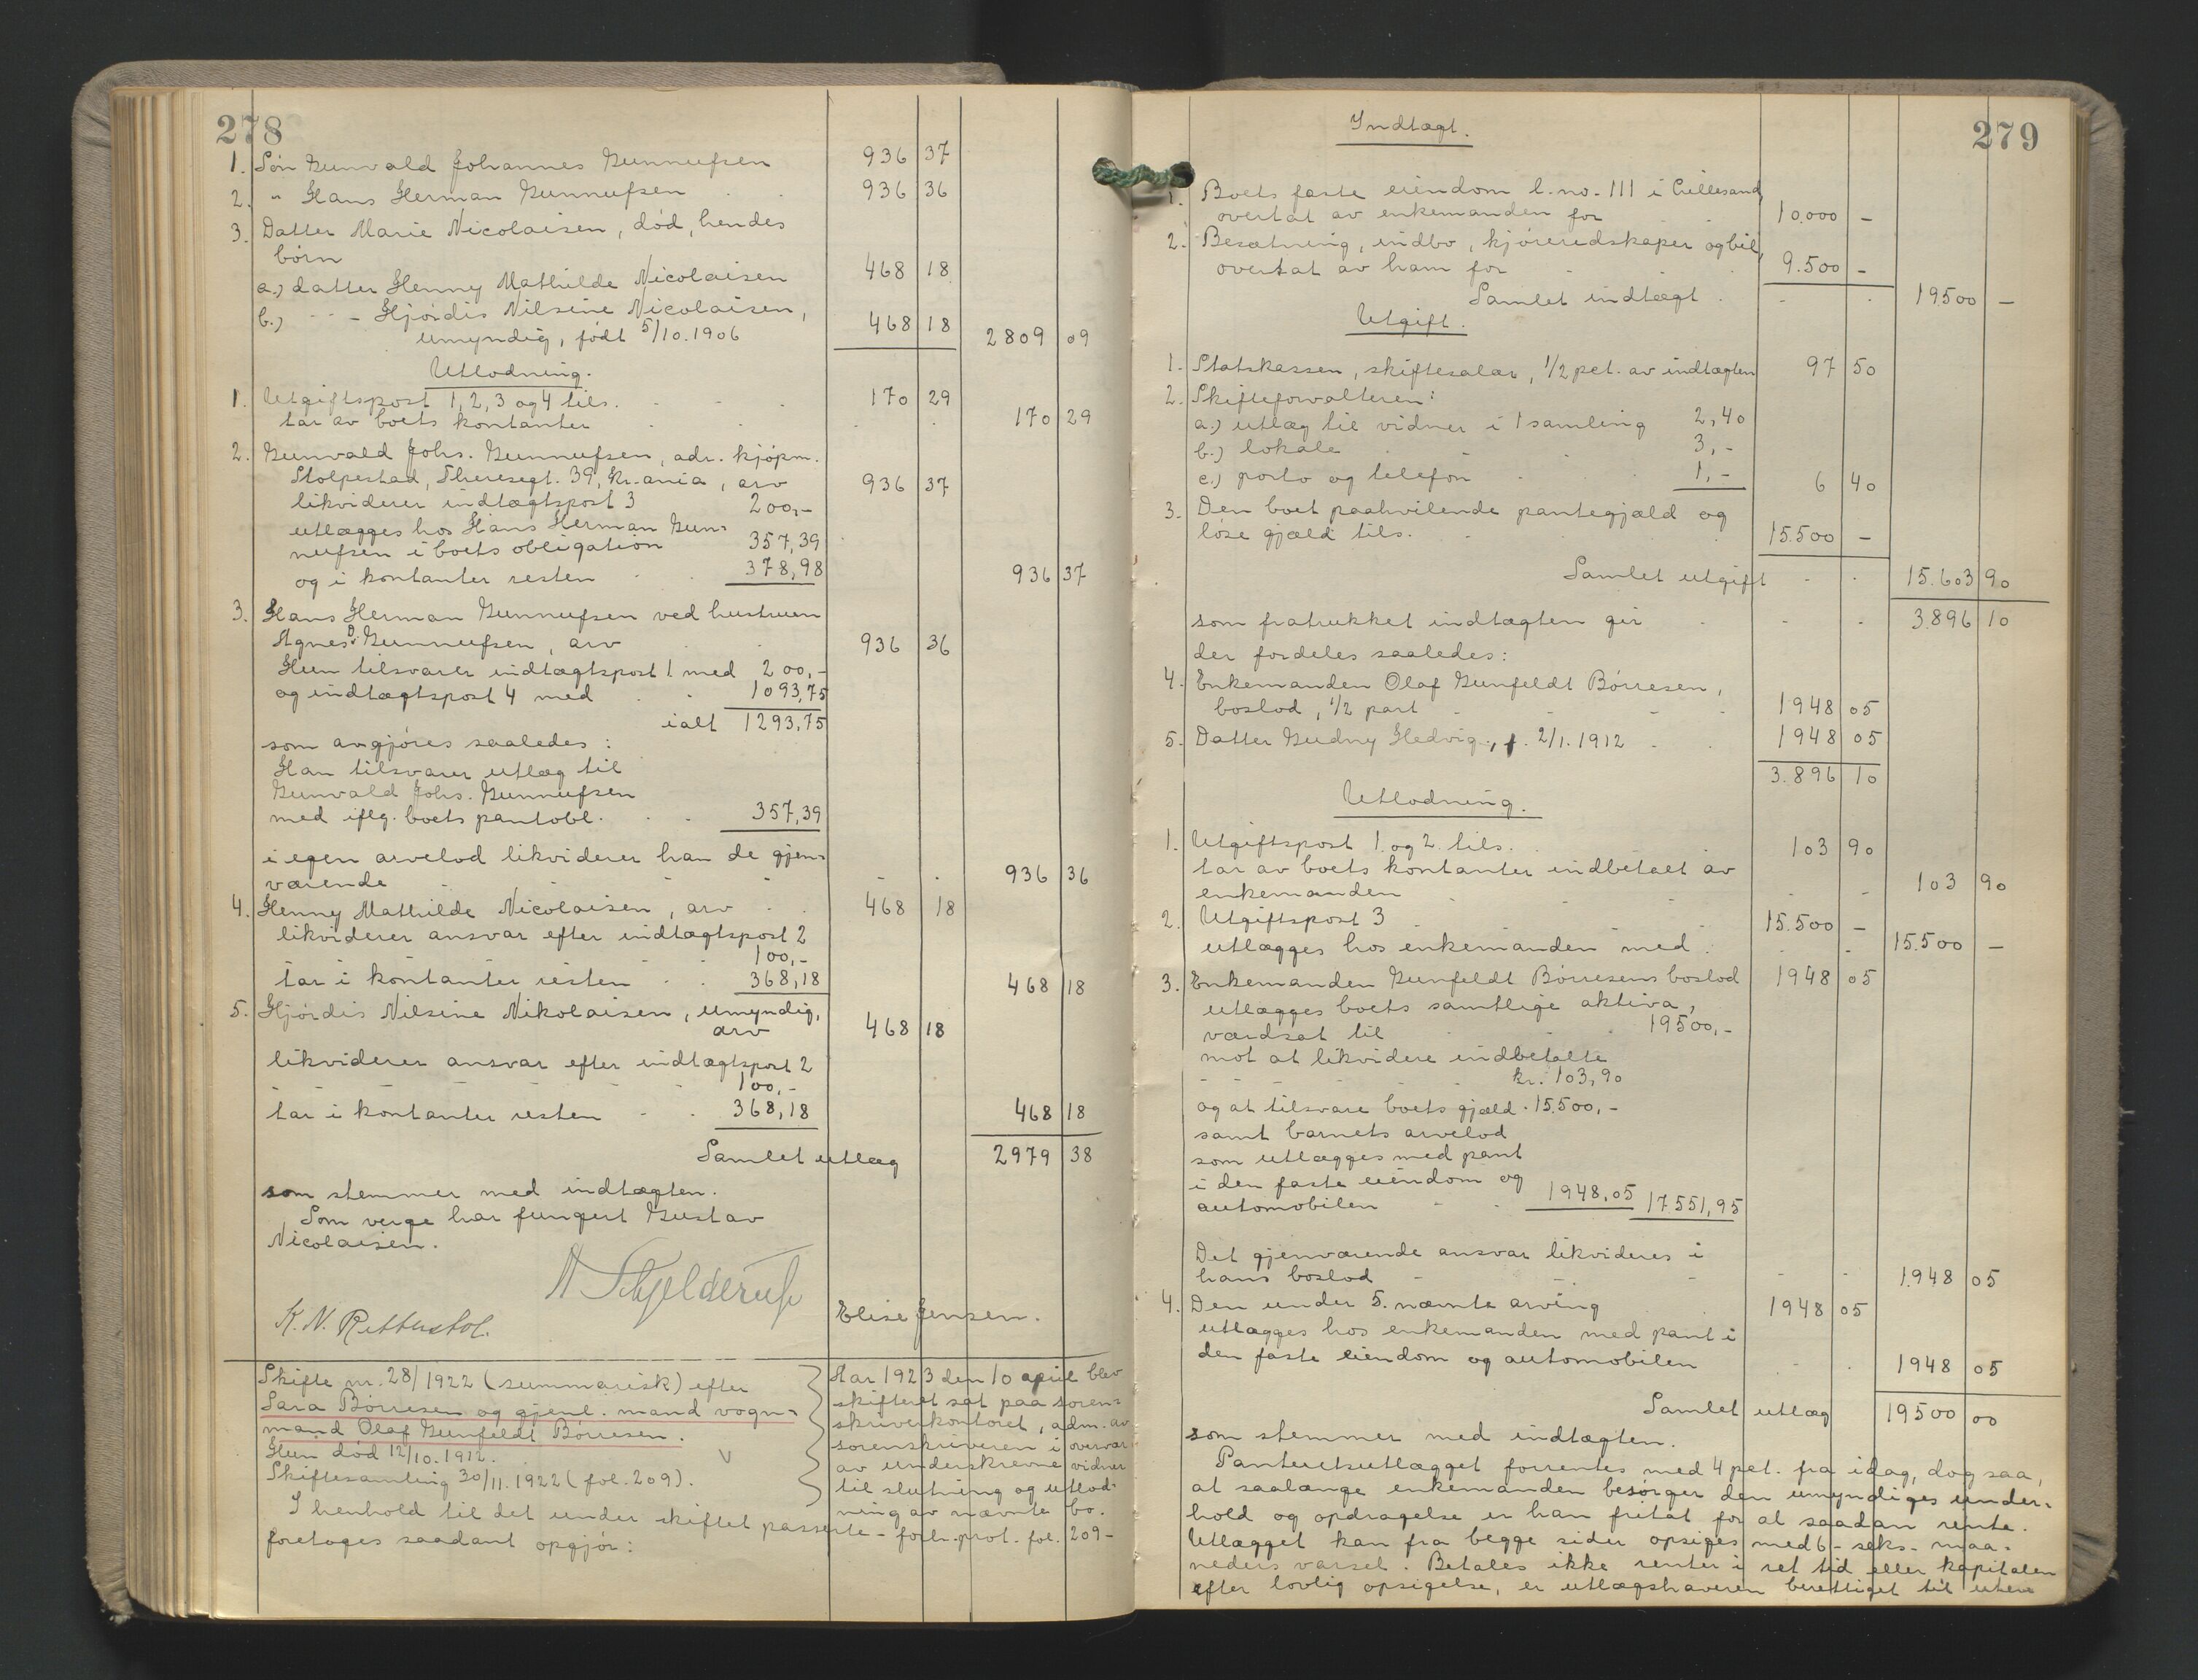 278
1. Søn Gunvald Johannes Gunnufsen 936 37
2. " Hans Herman Gunnufsen 936 36
3. Datter Marie Nicolaisen, død, hendes
børn
a.) datter Henny Mathilde Nicolaisen 468 18
b.) - " - Hjørdis Nilsine Nicolaisen,
umyndig, født 5/10.1906 468 18 2809 09
Utlodning.
1. Utgiftspost 1, 2, 3 og 4 tils. 170 29
tar av boets kontanter 170 29
2. Gunvald Johs. Gunnufsen, adr. kjøpm.
Stolpestad, Theresegt. 39, Kr.ania, arv 936 37
likviderer indtægtspost 3 200,-
utlægges hos Hans Herman Gun-
nufsen i boets obligation 357,39
og i kontanter resten 378,98 936 37
3. Hans Herman Gunnufsen ved hustruen
Agnes D. Gunnufsen, arv 936 36
Hun tilsvarer indtægtspost 1 med 200,-
og indtægtspost 4 med 1093,75
ialt 1293,75
som avgjøres saaledes:
Han tilsvarer utlæg til
Gunvald Johs. Gunnufsen
med iflg. boets pantobl. 357,39
i egen arvelod likviderer han de gjen-
værende 936 36
4. Henny Mathilde Nicolaisen, arv 468 18
likviderer ansvar efter indtægtspost 2
100,-
tar i kontanter resten 368,18 468 18
5. Hjørdis Nilsine Nikolaisen, umyndig,
arv 468 18
likviderer ansvar efter indtægtspost 2
100,-
tar i kontanter resten 368,18 468 18
Samlet utlæg 2979 38
som stemmer med indtægten.
Som verge har fungert Gustav
Nicolaisen.
A Schjelderup
K. N. Rettustøl. Elise Jensen.
Skifte nr. 28/1922 (summarisk) efter
Sara Børresen og gjenl. mand vogn-
mand Olaf Gunfeldt Børresen.
Hun død 12/10.1912. V
Skiftesamling 30/11.1922 (fol. 209).
Aar 1923 den 10 april blev
skifteret sat paa soren-
skriverkontoret, adm. av
sorenskriveren i overvær
av underskrevne vidner
til slutning og utlod-
ning av nævnte bo.
I henhold til det under skiftet passerte - forh.prot. fol. 209-
foretoges saadant opgjør:
279
Indtægt.
1. Boets faste eiendom l.no. 111 i Lillesand,
overtat av enkemanden for 10.000 -
2. Besætning, indbo, kjøreredskaper og bil,
overtat av ham for 9.500 -
Samlet indtægt 19500 -
Utgift.
1. Statskassen, skiftesalær, 1/2 pct. av indtægten 97 50
2. Skifteforvalteren:
a.) utlæg til vidner i 1 samling 2,40
b.) lokale 3,-
c.) porto og telefon 1,- 6 40
3. Den boet paahvilende pantegjæld og
løse gjæld tils. 15.500 -
Samlet utgift 15.603 90
som fratrukket indtægten gir 3.896 10
der fordeles saaledes:
4. Enkemanden Olaf Gunfeldt Børresen,
boslod, 1/2 part 1948 05
5. Datter Gudny Hedvig, f. 2/1.1912 1948 05
3.896 10
Utlodning.
1. Utgiftspost 1. og 2. tils. 103 90
tar av boets kontanter indbetalt av
enkemanden 103 90
2. Utgiftspost 3 15.500 -
utlægges hos enkemanden med 15.500 -
3. Enkemanden Gunfeldt Børresens boslod 1948 05
utlægges boets samtlige aktiva,
værdsat til 19500,-
mot at likvidere indbetalte
kr. 103,90
og at tilsvare boets gjæld 15.500,-
samt barnets arvelod
som utlægges med pant
i den faste eiendom og
automobilen 1948,05 17551,95
Det gjenværende ansvar likvideres i
hans boslod 1.948 05
4. Den under 5. nævnte arving 1948 05
utlægges hos enkemanden med pant i
den faste eiendom og automobilen 1948 05
Samlet utlæg 19500 00
som stemmer med indtægten.
Panteretsutlægget forrentes med 4 pct. fra idag, dog saa,
at saalænge enkemanden besørger den umyndiges under-
hold og opdragelse er han fritat for at saadan rente.
Utlægget kan fra begge sider opsiges med 6 - seks - maa-
neders varsel. Betales ikke renter i ret tid eller kapitalen
efter lovlig opsigelse, er utlægshaveren berettiget til uten